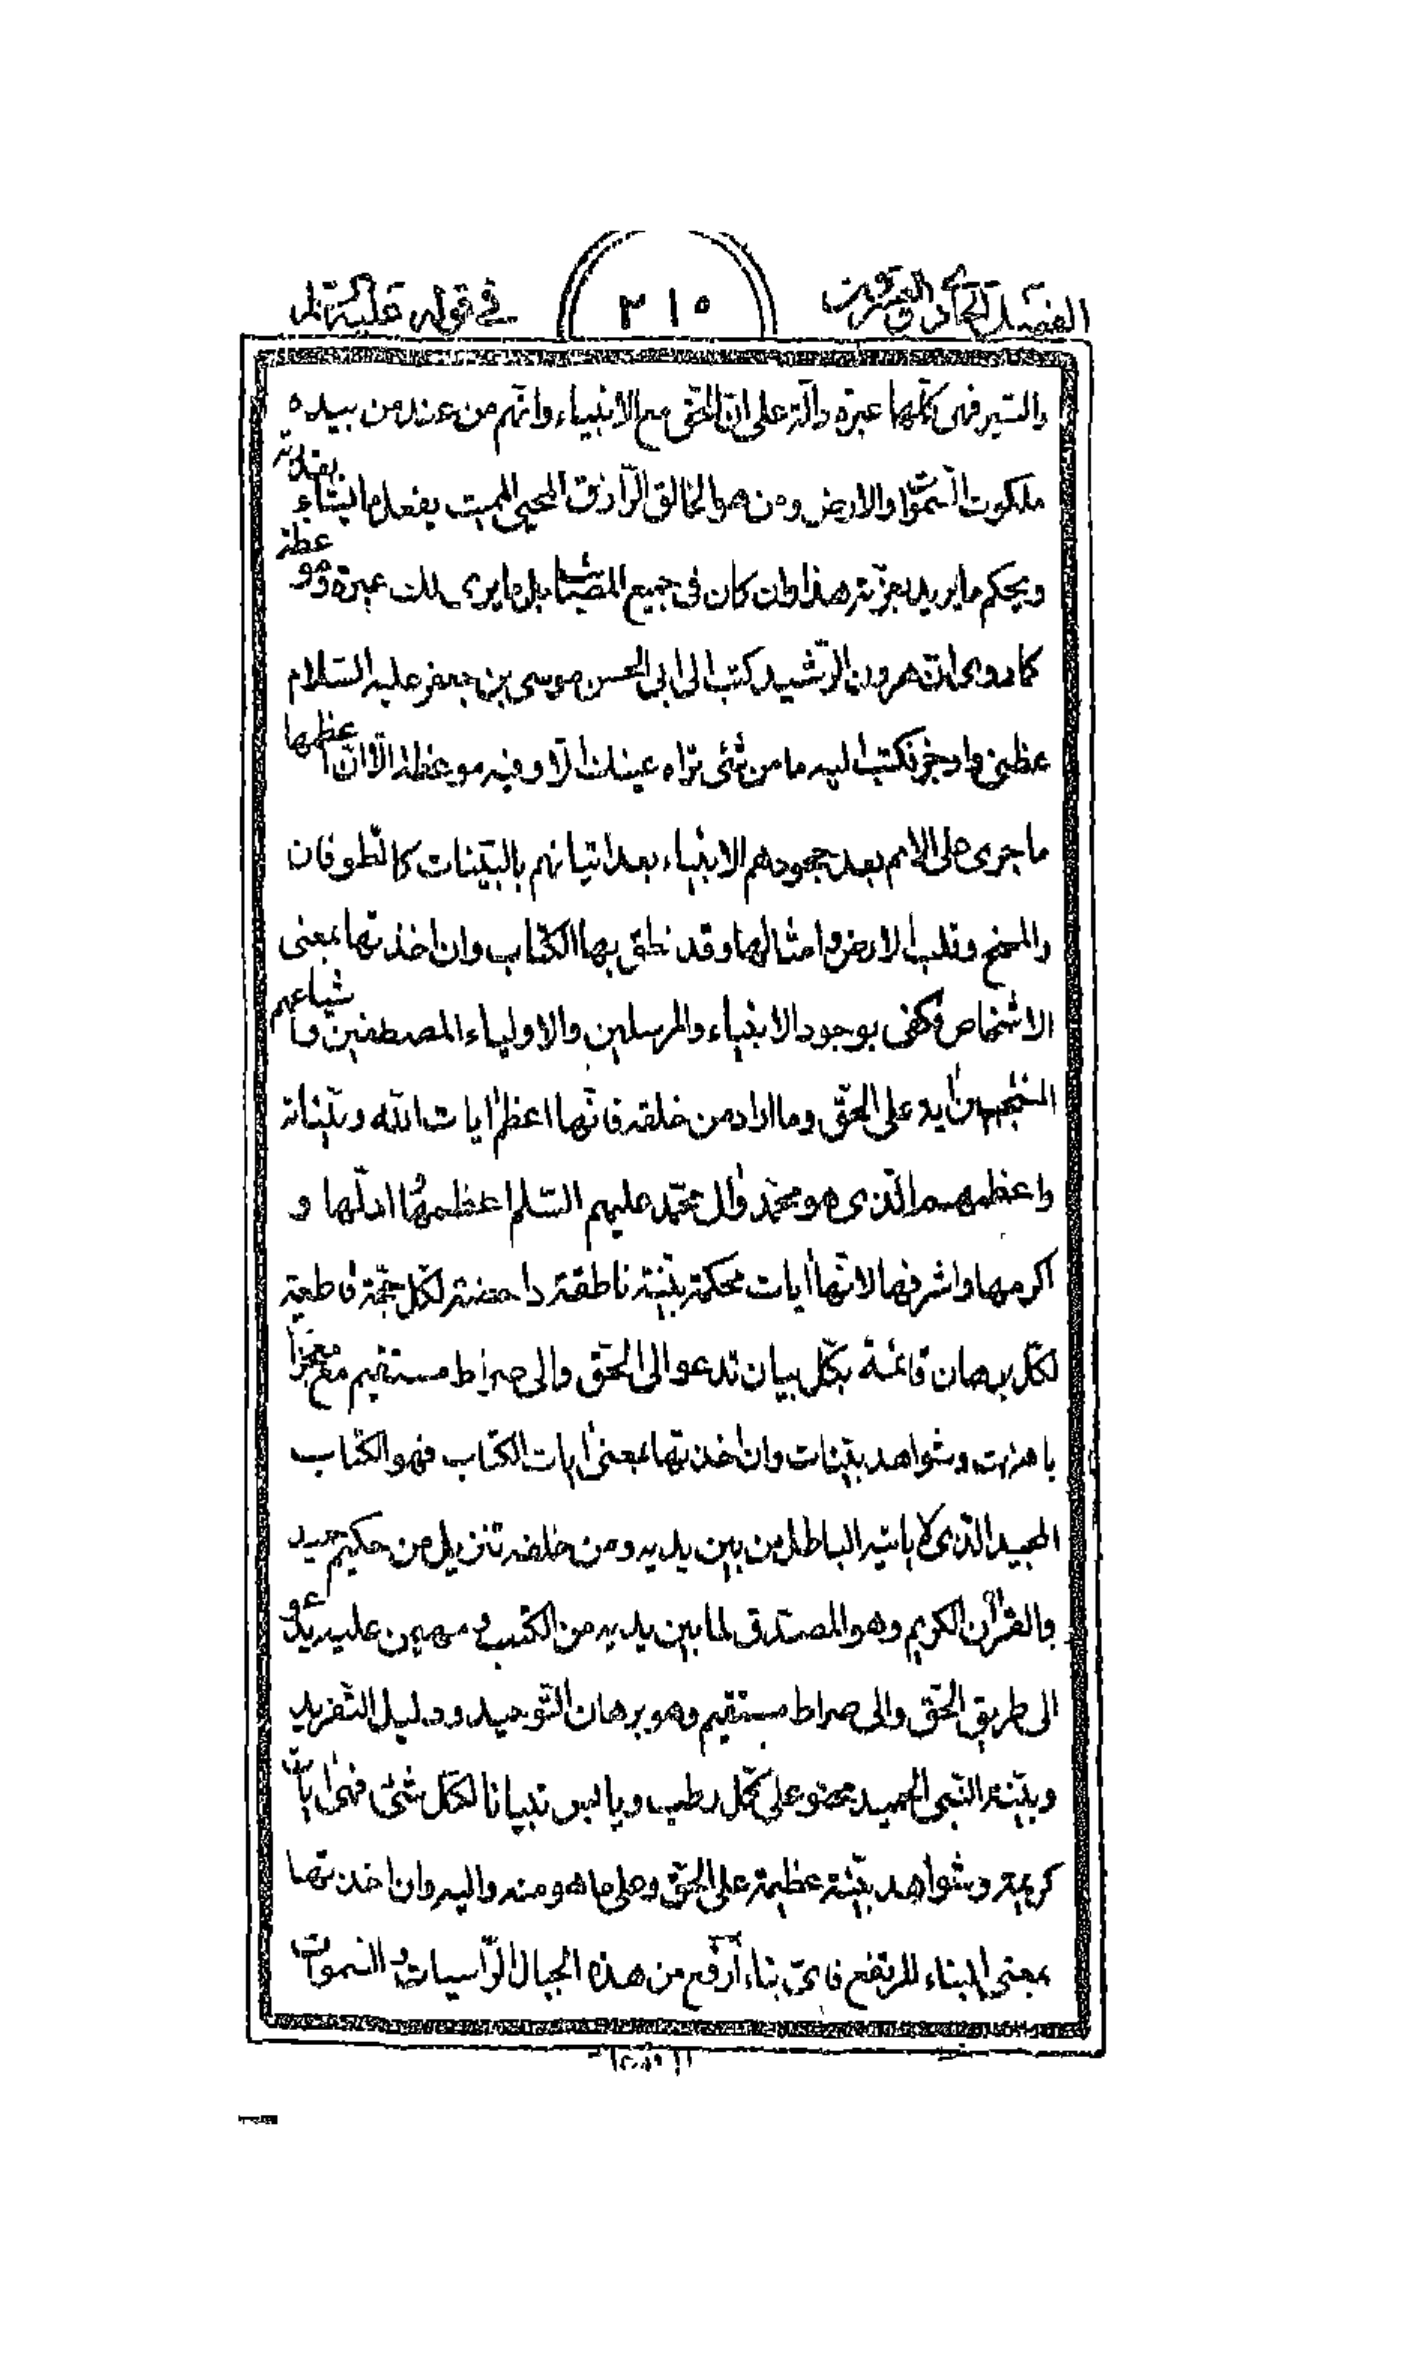 الفصل الحادي والعشرون
٢١٥
في قوله عليه السلام
والسير فهى كلّها عبرة دالّة على انّ الحقّ مع الانبياء وانّهم من عند من بيده
ملكوت السّموات والارض ومن هو الخالق الرّازق المحيى المميت يفعل ما يشاء بقدرته
ويحكم ما يريد بعزّته هذا وان كان فى جميع المصنوعات بل ما يرى لك عبرة وموعظة
كما روى انّ هرون الرّشيد كتب الى ابى الحسن موسى بن جعفر عليه السّلام
عظنى واوجز فكتب اليه ما من شئ تراه عينك الّا وفيه موعظة الّا انّ اعظمها
ما جرى على الامم بعد جحودهم الانبياء بعد اتيانهم بالبيّنات كالطّوفان
والمسخ وقلب الارض وامثالها وقد نطق بها الكتاب وان اخذتها بمعنى
الاشخاص فكفى بوجود الانبياء والمرسلين والاولياء المصطفين واشياعهم
المنتجبين اية على الحقّ وما اراد من خلقه فانّها اعظم ايات الله وبيّناته
واعظمهم الّذى هو محمّد وال محمّد عليهم السّلم اعظمها وادلّها و
اكرمها واشرفها لانّها ايات محكمة بيّنة ناطقة داحضة لكلّ حجّة قاطعة
لكلّ برهان قائمة بكلّ بيان تدعو الى الحقّ والى صراط مستقيم مع معجزات
باهرات وشواهد بيّنات وان اخذتها بمعنى ايات الكتاب فهو الكتاب
المجيد الّذى لا ياتيه الباطل من بين يديه ومن خلفه تنزيل من حكيم حميد
والقران الكريم وهو المصدّق لما بين يديه من الكتب ومهيمن عليه يدعو
الى طريق الحقّ والى صراط مستقيم وهو برهان التّوحيد ودليل التّفريد
وبيّنة النّبى الحميد محتو على كلّ رطب ويابس تبيانا لكلّ شئ فهى ايات
كريمة وشواهد بيّنة عظيمة على الحقّ وعلى ما هو منه واليه وان اخذتها
بمعنى البناء المرتفع فاىّ بناء ارفع من هذه الجبال الرّاسيات والسّموات